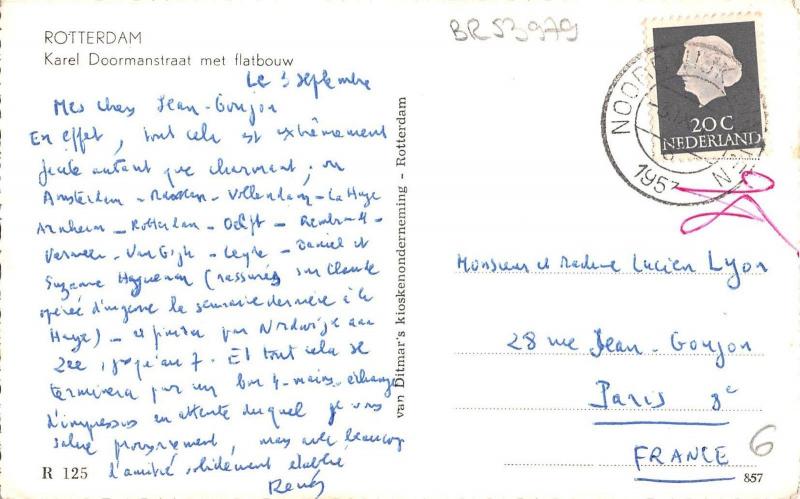 ROTTERDAM
Karel Doormanstraat met flatbouw
BR53979
Le 3 septembre
Mes chers Jean-Goujon
En effet, tout cela est extrêmement
autant que charmant; vu
Amsterdam - - Vollendam - La Haye
Arnheim - Rotterdam - Delft - Rembrandt -
Vermeer - Van Gogh - - Daniel et
Suzanne Haguenau (rassurés sur Claude
opérée d'urgence la semaine dernière à la
Haye) - et finir par Nordwijk aan
Zee, jusqu'au 7. Et tout cela se
terminera par un bon 4-mains, échange
d'impressions en attente duquel je vous
salue provisoirement, mais avec beaucoup
d'amitié solidement établie
René
R 125
van Ditmar's kioskenonderneming - Rotterdam
20 C
NEDERLAND
NOORDWIJK
1957
Monsieur et Madame Lucien Lyon
28 rue Jean-Goujon
Paris 8e
FRANCE
6
857